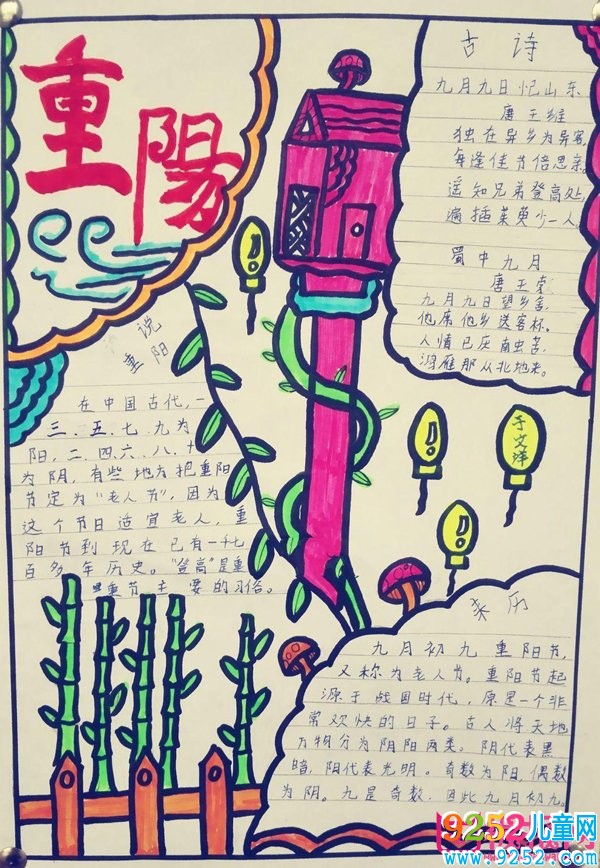 重陽
古诗
九月九日忆山东
唐 王维
独在异乡为异客,
每逢佳节倍思亲。
遥知兄弟登高处,
遍插茱萸少一人。
蜀中九月
唐王
九月九日望乡台,
他席他乡送客杯。
人情已厌南虫苦,
鸿雁那从北地来。
说
重阳
在中国古代,一
三.五.七.九为
阳,二.四.六.八.十
为阴,有些地方把重阳
节定为“老人节”,因为
这个节日适宜老人,重
阳节到现在已有一千七
百多年历史。“登高”是重
重节主要的习俗。
于文洋
来历
九月初九重阳节,
又称为老人节。重阳节起
源于战国时代,原是一个非
常欢快的日子。古人将天地
万物分为阴阳两类。阴代表黑
暗,阳代表光明。奇数为阳,偶数
为阴。九是奇数,因此九月初九
9252儿童网
www.9252.com